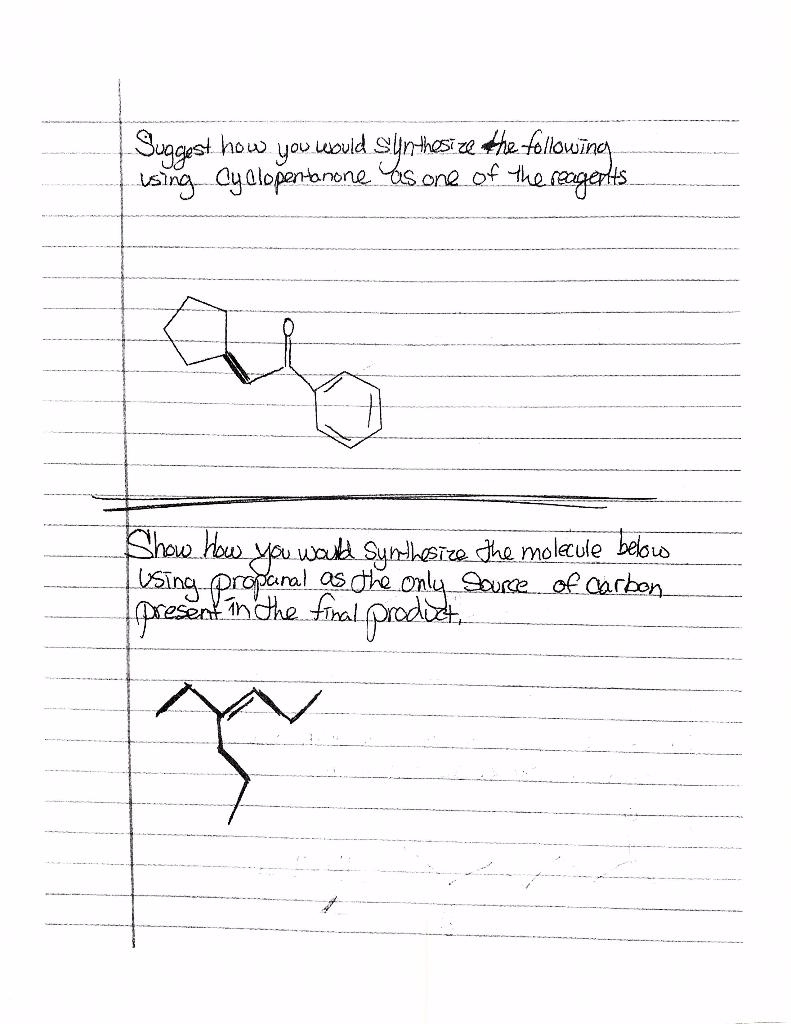 Suggest how you would synthesize the following
using Cyclopentanone as one of the reagents
O
Show how you would synthesize the molecule below
using propanal as the only source of carbon
present in the final product.